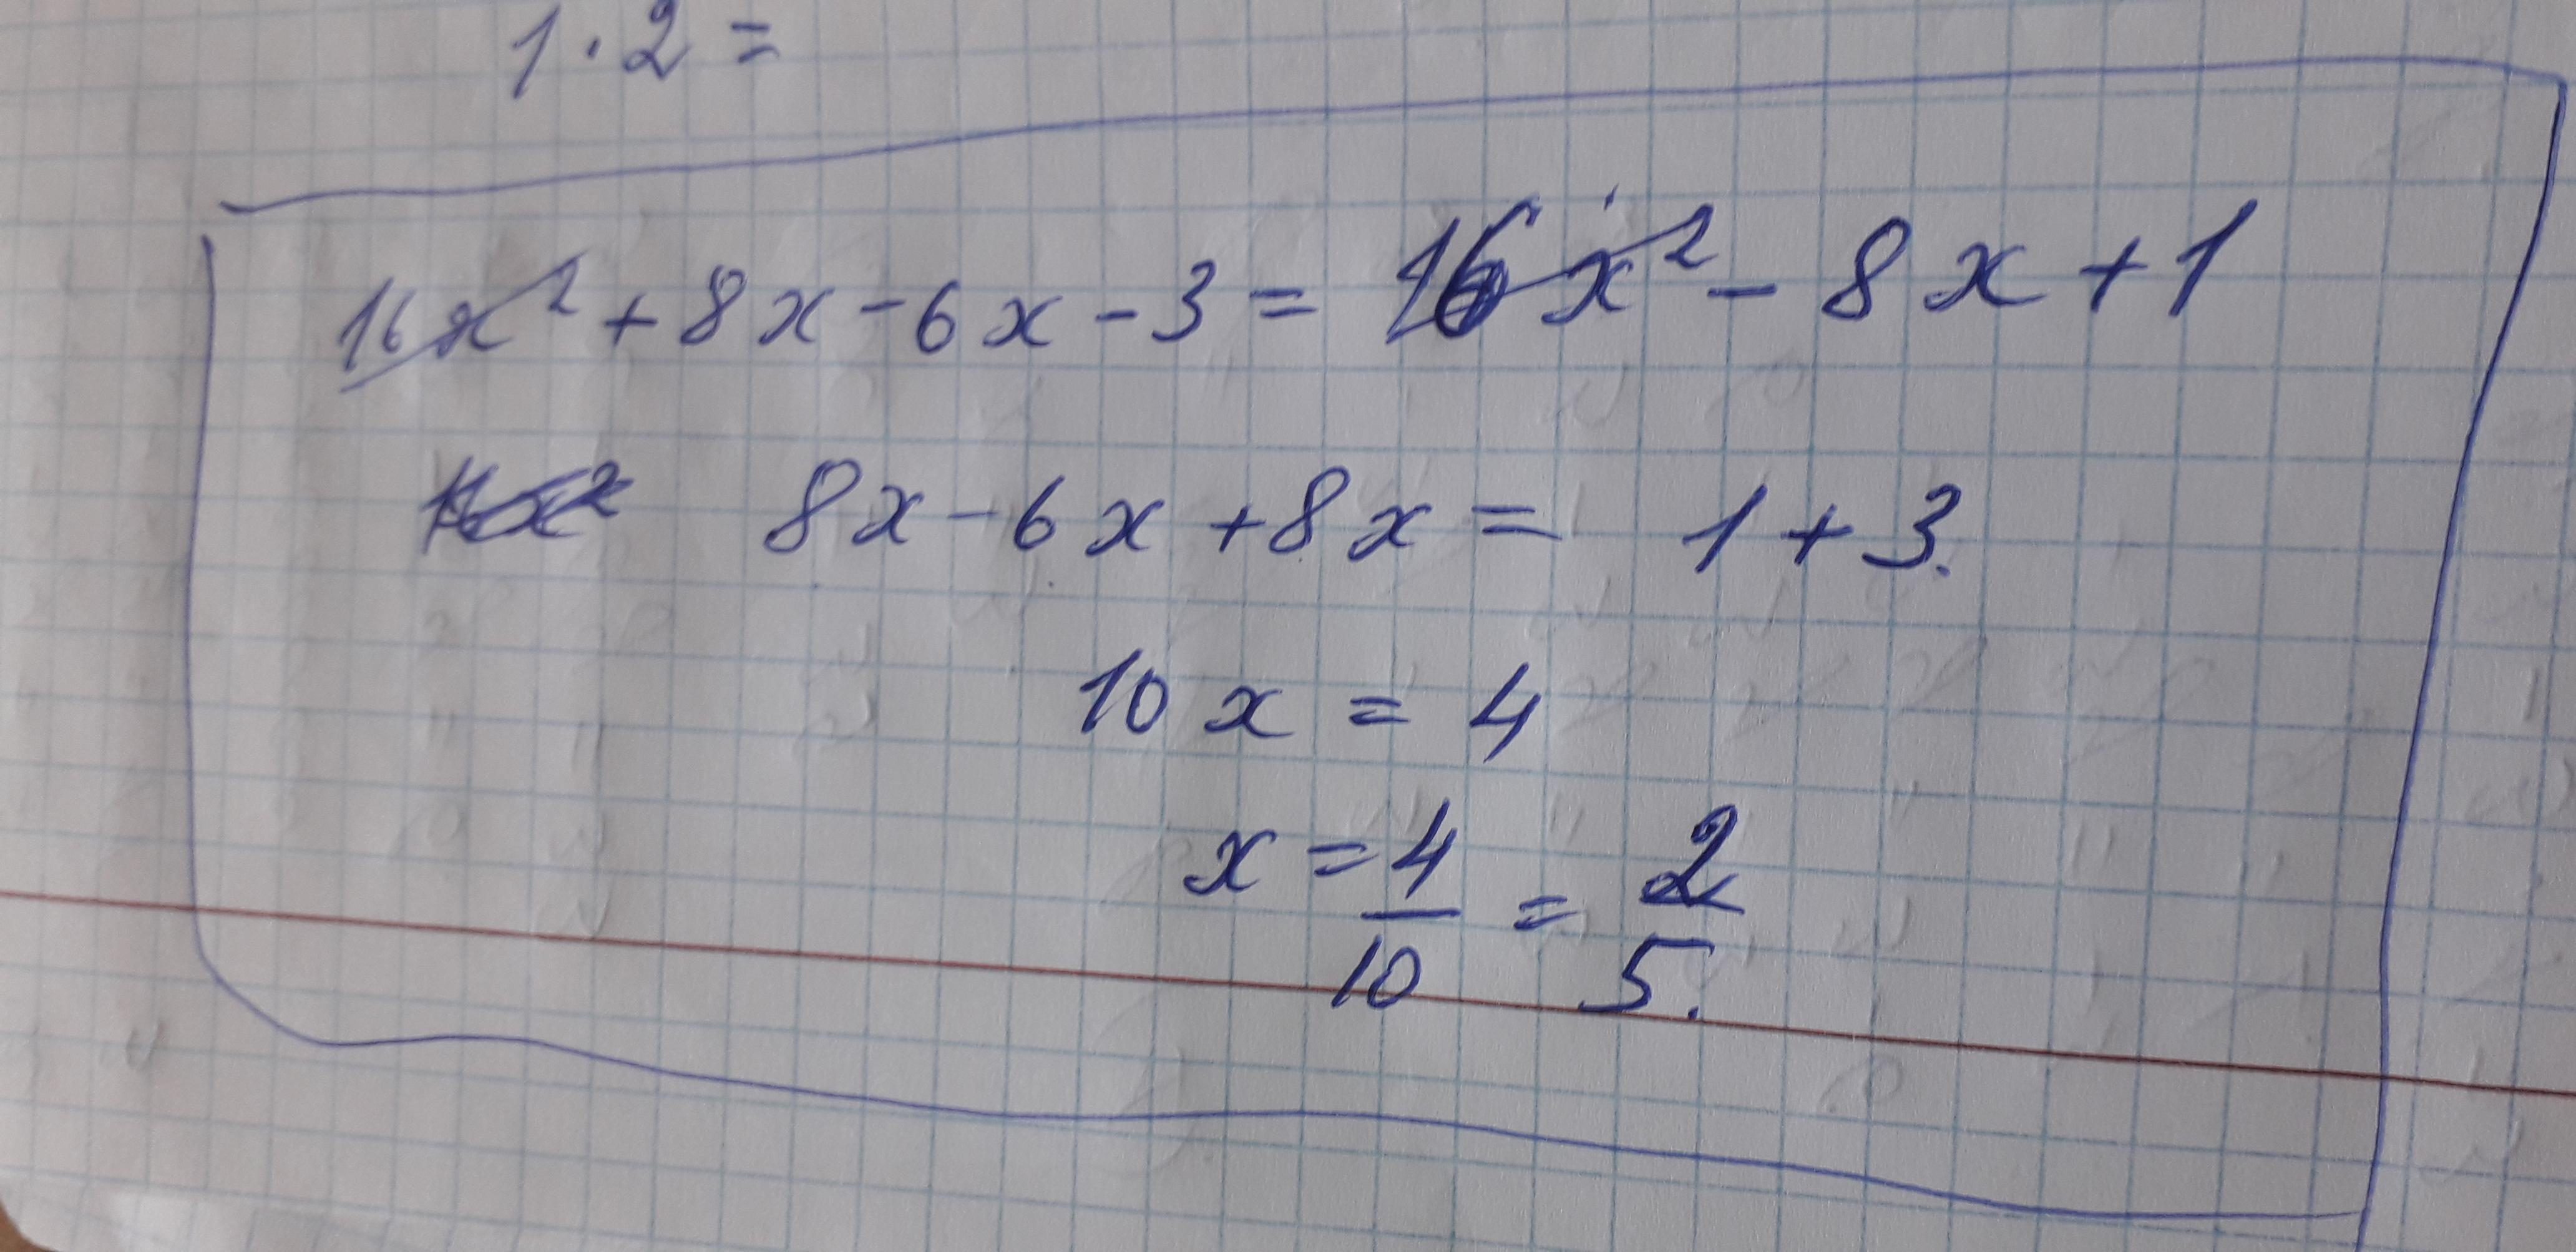 1 · 2 =
16x² + 8x - 6x - 3 = 16x² - 8x + 1
8x - 6x + 8x = 1 + 3.
10x = 4
x = 4/10 = 2/5.